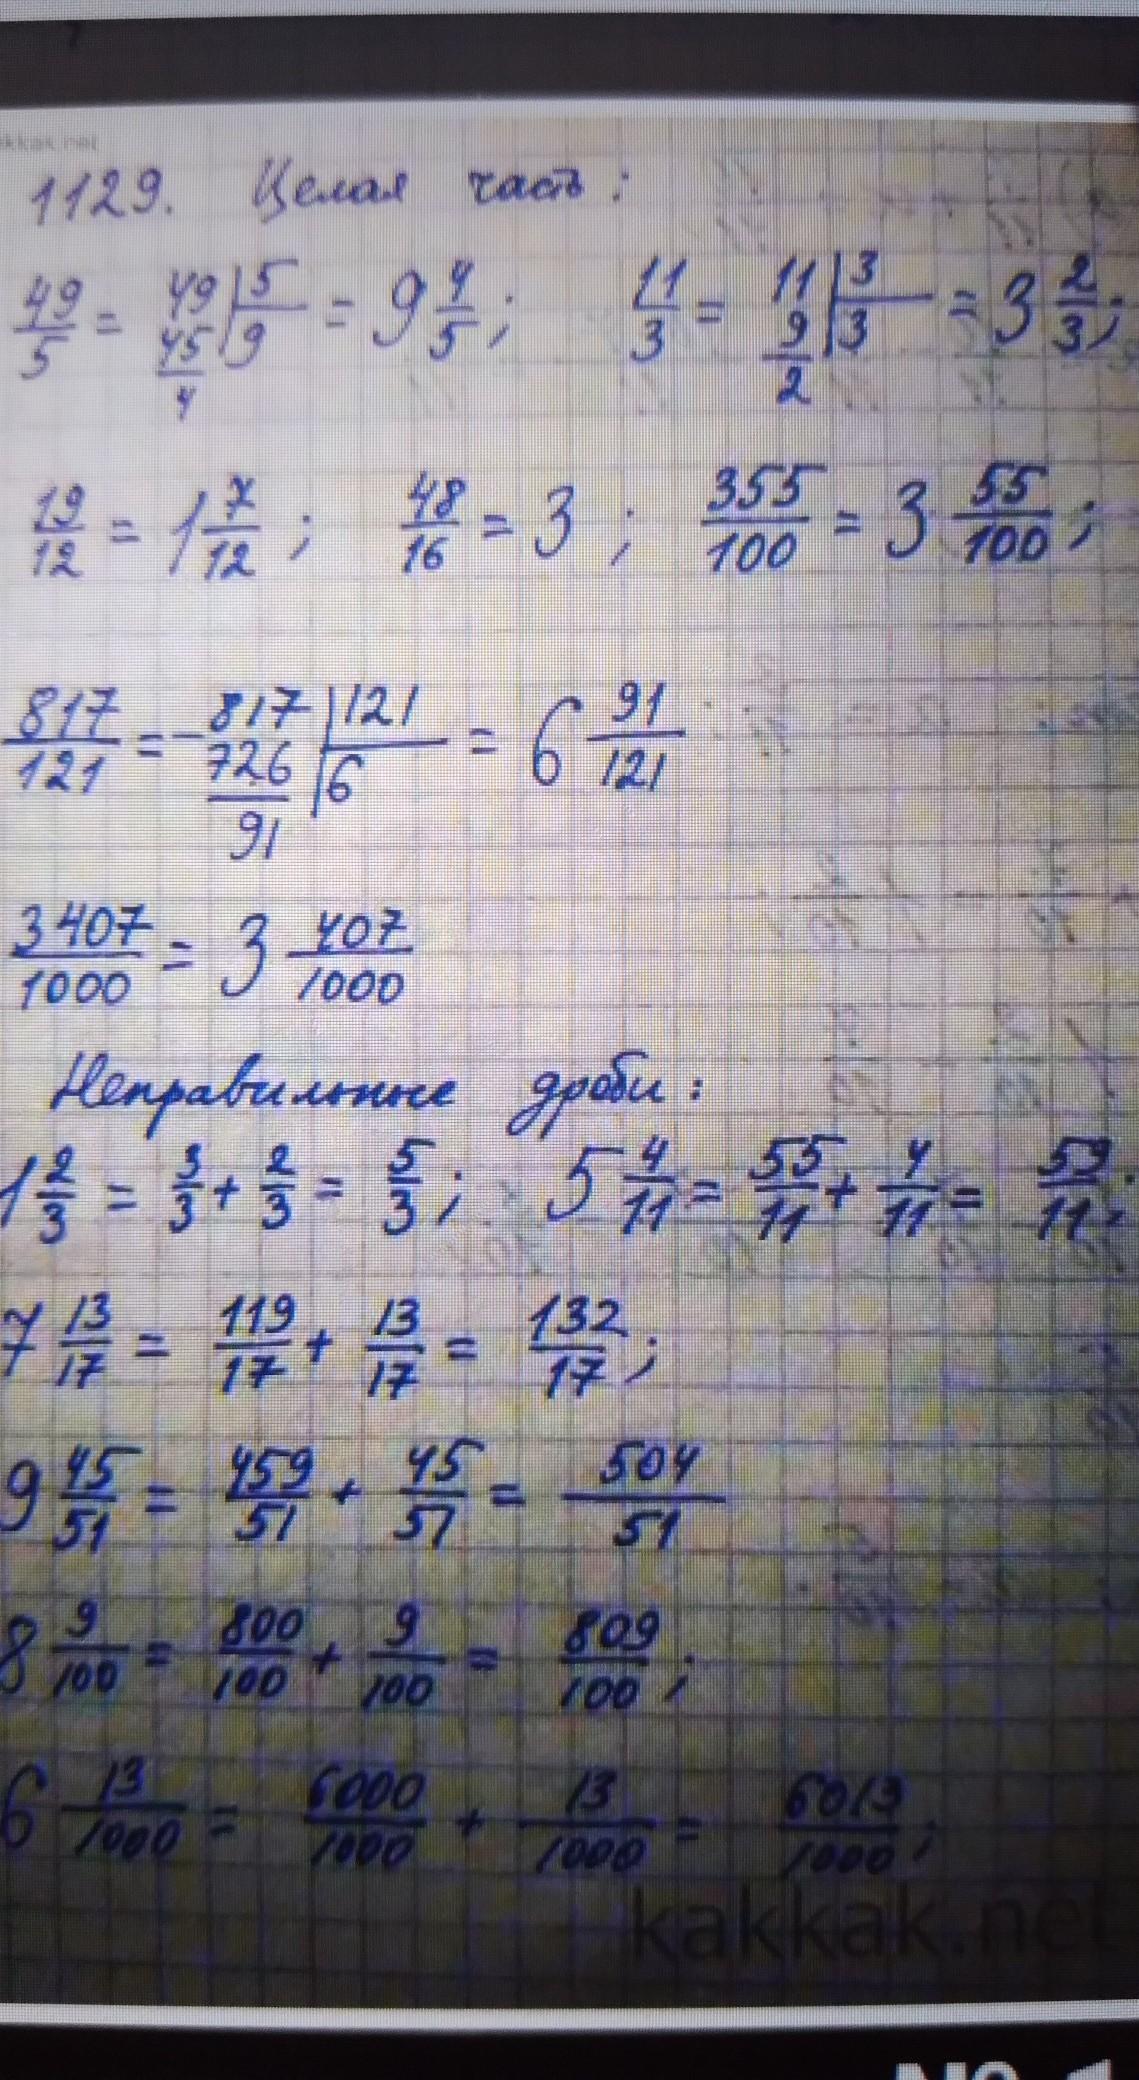 kkak.net
1129. Целая часть:
49/5 = 49 | 5 = 9 4/5; 11/3 = 11 | 3 = 3 2/3;
45 | 9 9 | 3
4 2
19/12 = 1 7/12; 48/16 = 3; 355/100 = 3 55/100;
817/121 = - 817 | 121 = 6 91/121
726 | 6
91
3407/1000 = 3 407/1000
Неправильные дроби:
1 2/3 = 3/3 + 2/3 = 5/3; 5 4/11 = 55/11 + 4/11 = 59/11;
7 13/17 = 119/17 + 13/17 = 132/17;
9 45/51 = 459/51 + 45/51 = 504/51
8 9/100 = 800/100 + 9/100 = 809/100;
6 13/1000 = 6000/1000 + 13/1000 = 6013/1000;
kakkak.net